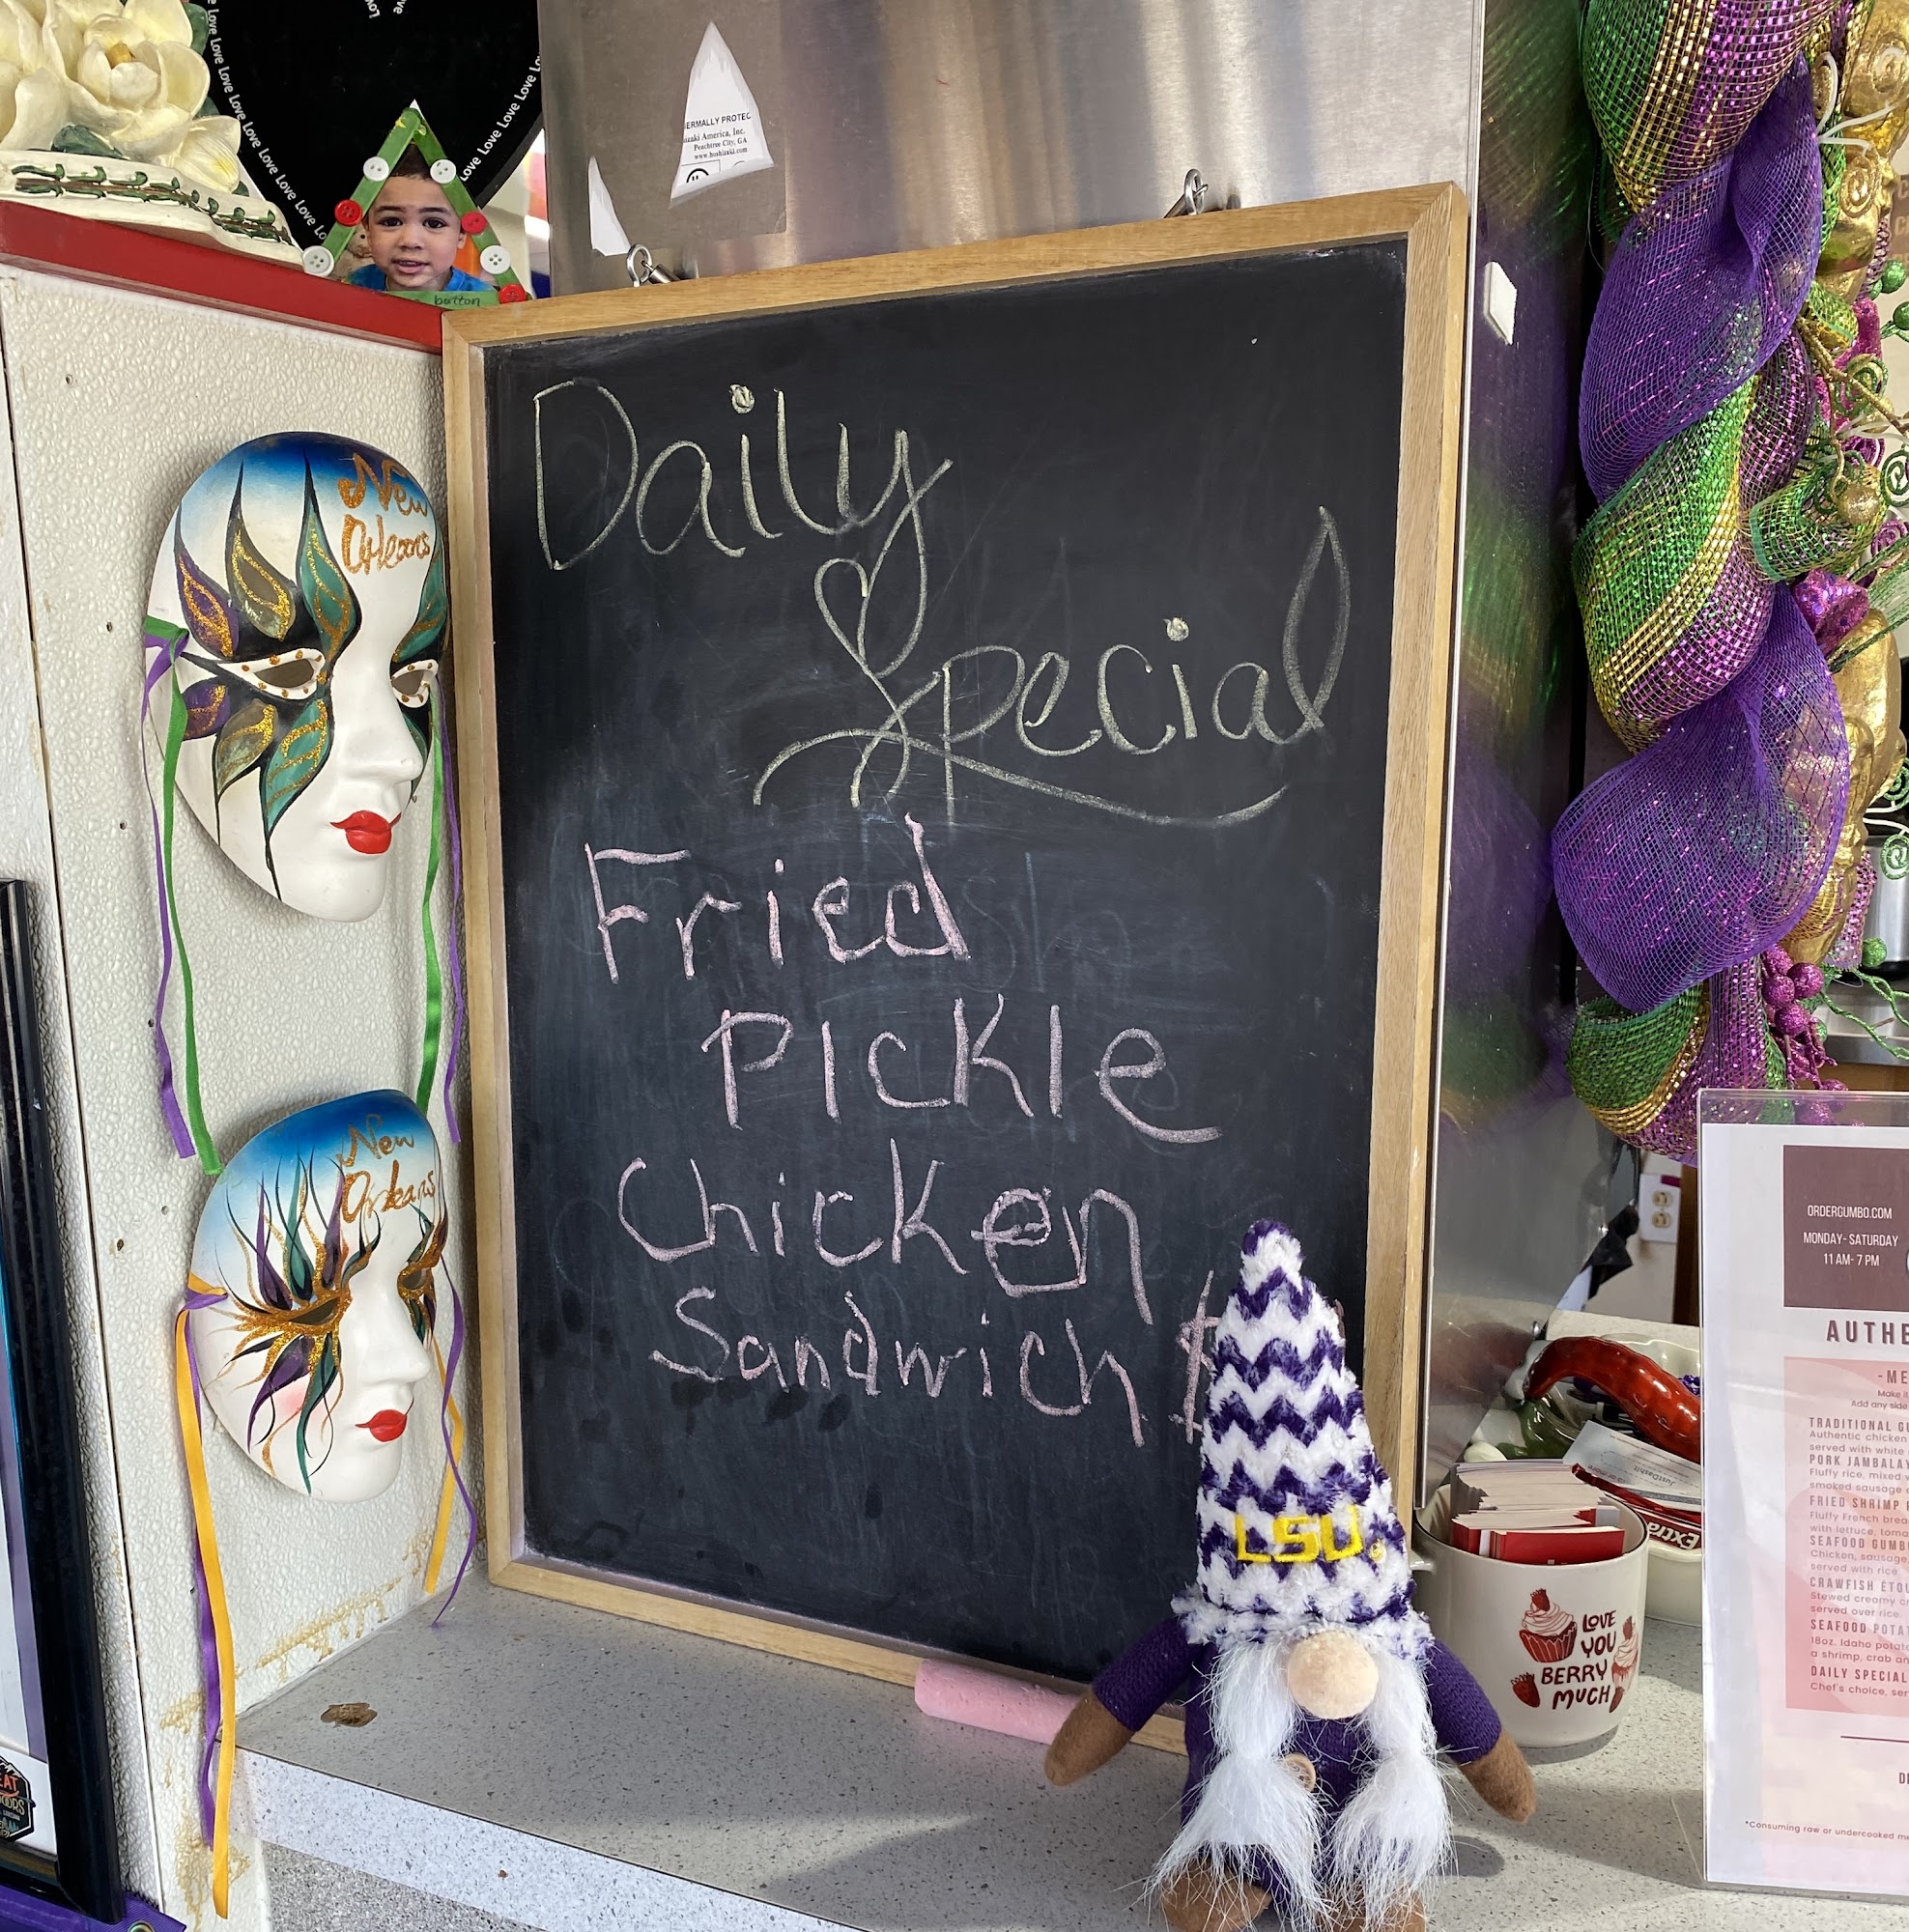 Love Love Love Love Love Love Love
Love Love Love
ERMALLY PROTEC
izaki America, Inc.
Peachtree City, GA
www.hoshizaki.com
button
New
Orleans
New
Orleans
Daily
Special
Fried
PIcKle
Chicken
Sandwich $
LSU
LOVE
YOU
BERRY
MUCH
JustDashit
Extra
ORDERGUMBO.COM
MONDAY- SATURDAY
11 AM- 7 PM
AUTHE
-ME
Make it
Add any side
TRADITIONAL GU
Authentic chicken
served with white
PORK JAMBALAY
Fluffy rice, mixed
smoked sausage
FRIED SHRIMP
Fluffy French brea
with lettuce, toma
SEAFOOD GUMBO
Chicken, sausage,
served with rice.
CRAWFISH ÉTOU
Stewed creamy cr
served over rice.
SEAFOOD POTAT
18oz. Idaho potato
a shrimp, crab an
DAILY SPECIAL
Chef's choice, ser
*Consuming raw or undercooked me